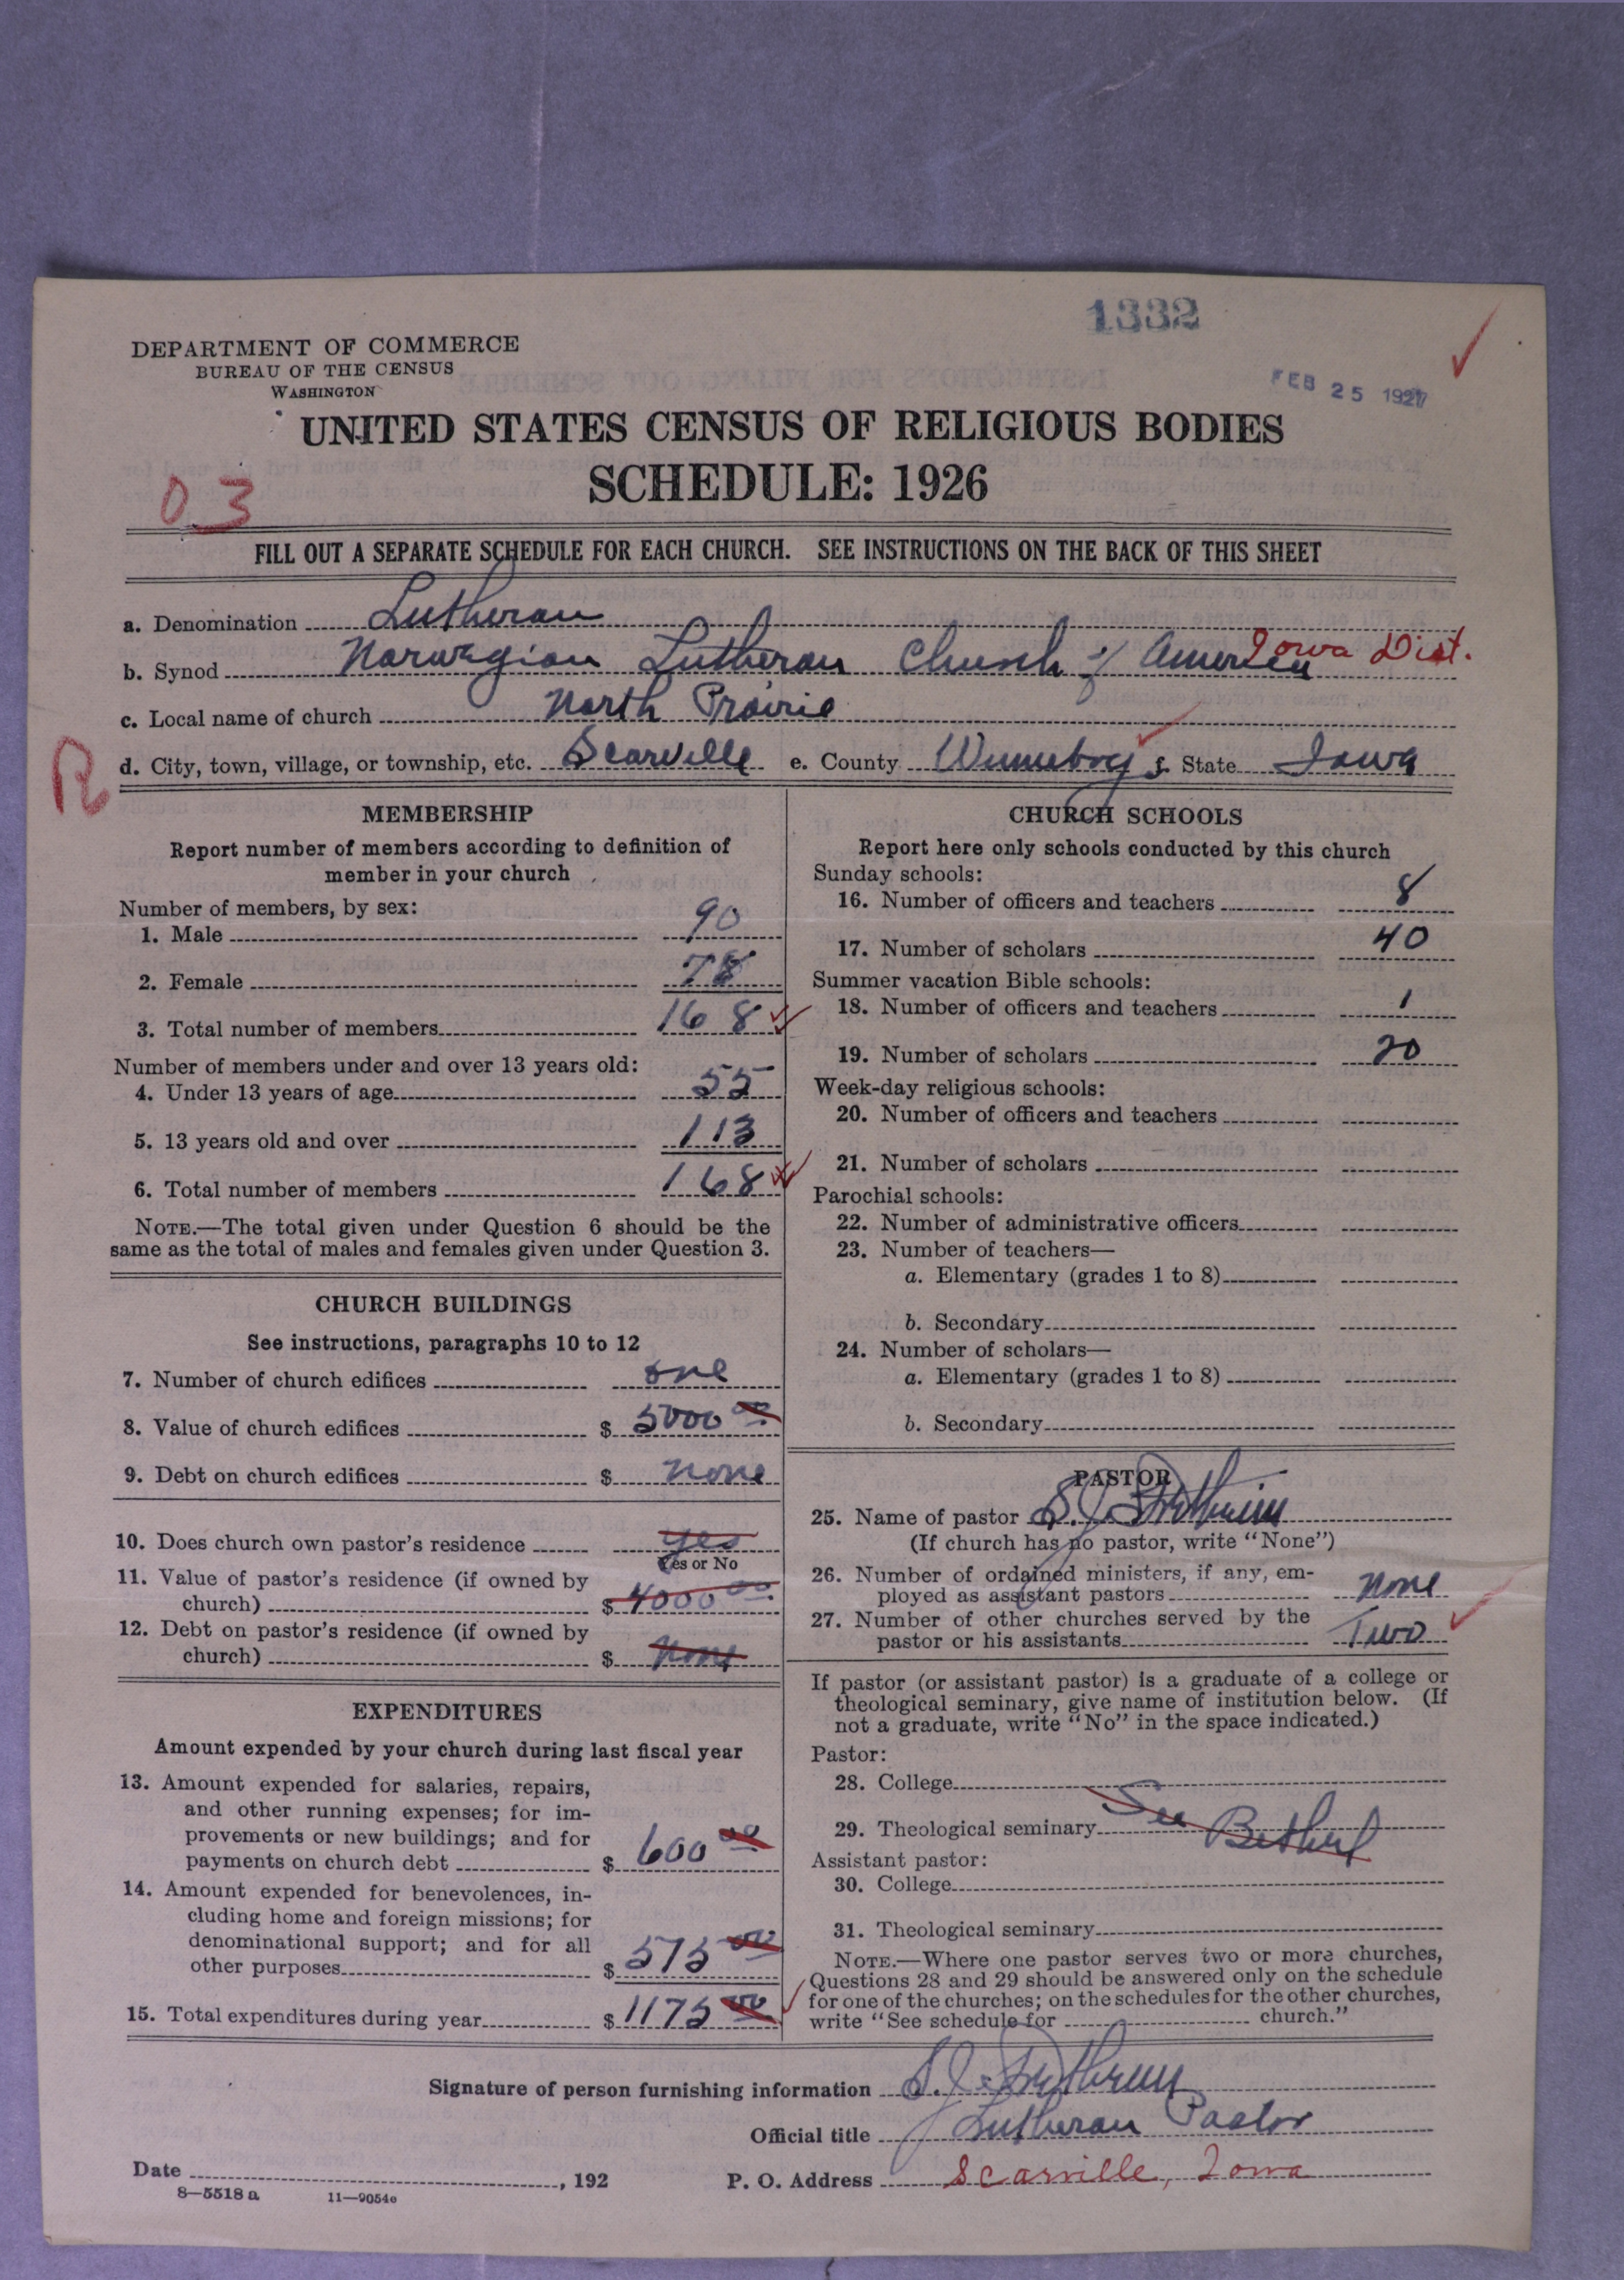 1332
DEPARTMENT OF COMMERCE
BUREAU OF THE CENSUS
WASHINGTON
FEB 25 1927
UNITED STATES CENSUS OF RELIGIOUS BODIES
SCHEDULE: 1926
03
FILL OUT A SEPARATE SCHEDULE FOR EACH CHURCH. SEE INSTRUCTIONS ON THE BACK OF THIS SHEET
a. Denomination Lutheran
b. Synod Norwegian Lutheran Church of America Iowa Dist.
c. Local name of church North Prairie
R
d. City, town, village, or township, etc. Scarville e. County Winnebago f. State Iowa
MEMBERSHIP
Report number of members according to definition of
member in your church
Number of members, by sex:
1. Male 90
2. Female 78
3. Total number of members 168
Number of members under and over 13 years old:
4. Under 13 years of age 55
5. 13 years old and over 113
6. Total number of members 168
NOTE.—The total given under Question 6 should be the
same as the total of males and females given under Question 3.
CHURCH BUILDINGS
See instructions, paragraphs 10 to 12
7. Number of church edifices one
8. Value of church edifices $ 5000 00
9. Debt on church edifices $ none
10. Does church own pastor's residence yes
Yes or No
11. Value of pastor's residence (if owned by
church) $ 4000 00
12. Debt on pastor's residence (if owned by
church) $ none
EXPENDITURES
Amount expended by your church during last fiscal year
13. Amount expended for salaries, repairs,
and other running expenses; for im-
provements or new buildings; and for
payments on church debt $ 600 00
14. Amount expended for benevolences, in-
cluding home and foreign missions; for
denominational support; and for all
other purposes $ 575 00
15. Total expenditures during year $ 1175 00
CHURCH SCHOOLS
Report here only schools conducted by this church
Sunday schools:
16. Number of officers and teachers 8
17. Number of scholars 40
Summer vacation Bible schools:
18. Number of officers and teachers 1
19. Number of scholars 20
Week-day religious schools:
20. Number of officers and teachers
21. Number of scholars
Parochial schools:
22. Number of administrative officers
23. Number of teachers—
a. Elementary (grades 1 to 8)
b. Secondary
24. Number of scholars—
a. Elementary (grades 1 to 8)
b. Secondary
PASTOR
25. Name of pastor S. J.
(If church has no pastor, write "None")
26. Number of ordained ministers, if any, em-
ployed as assistant pastors none
27. Number of other churches served by the
pastor or his assistants Two
If pastor (or assistant pastor) is a graduate of a college or
theological seminary, give name of institution below. (If
not a graduate, write "No" in the space indicated.)
Pastor:
28. College
29. Theological seminary See Bethel
Assistant pastor:
30. College
31. Theological seminary
NOTE.—Where one pastor serves two or more churches,
Questions 28 and 29 should be answered only on the schedule
for one of the churches; on the schedules for the other churches,
write "See schedule for church."
Signature of person furnishing information S. J.
Official title Lutheran Pastor
Date , 192 P. O. Address Scarville, Iowa
8—5518 a 11—9054c